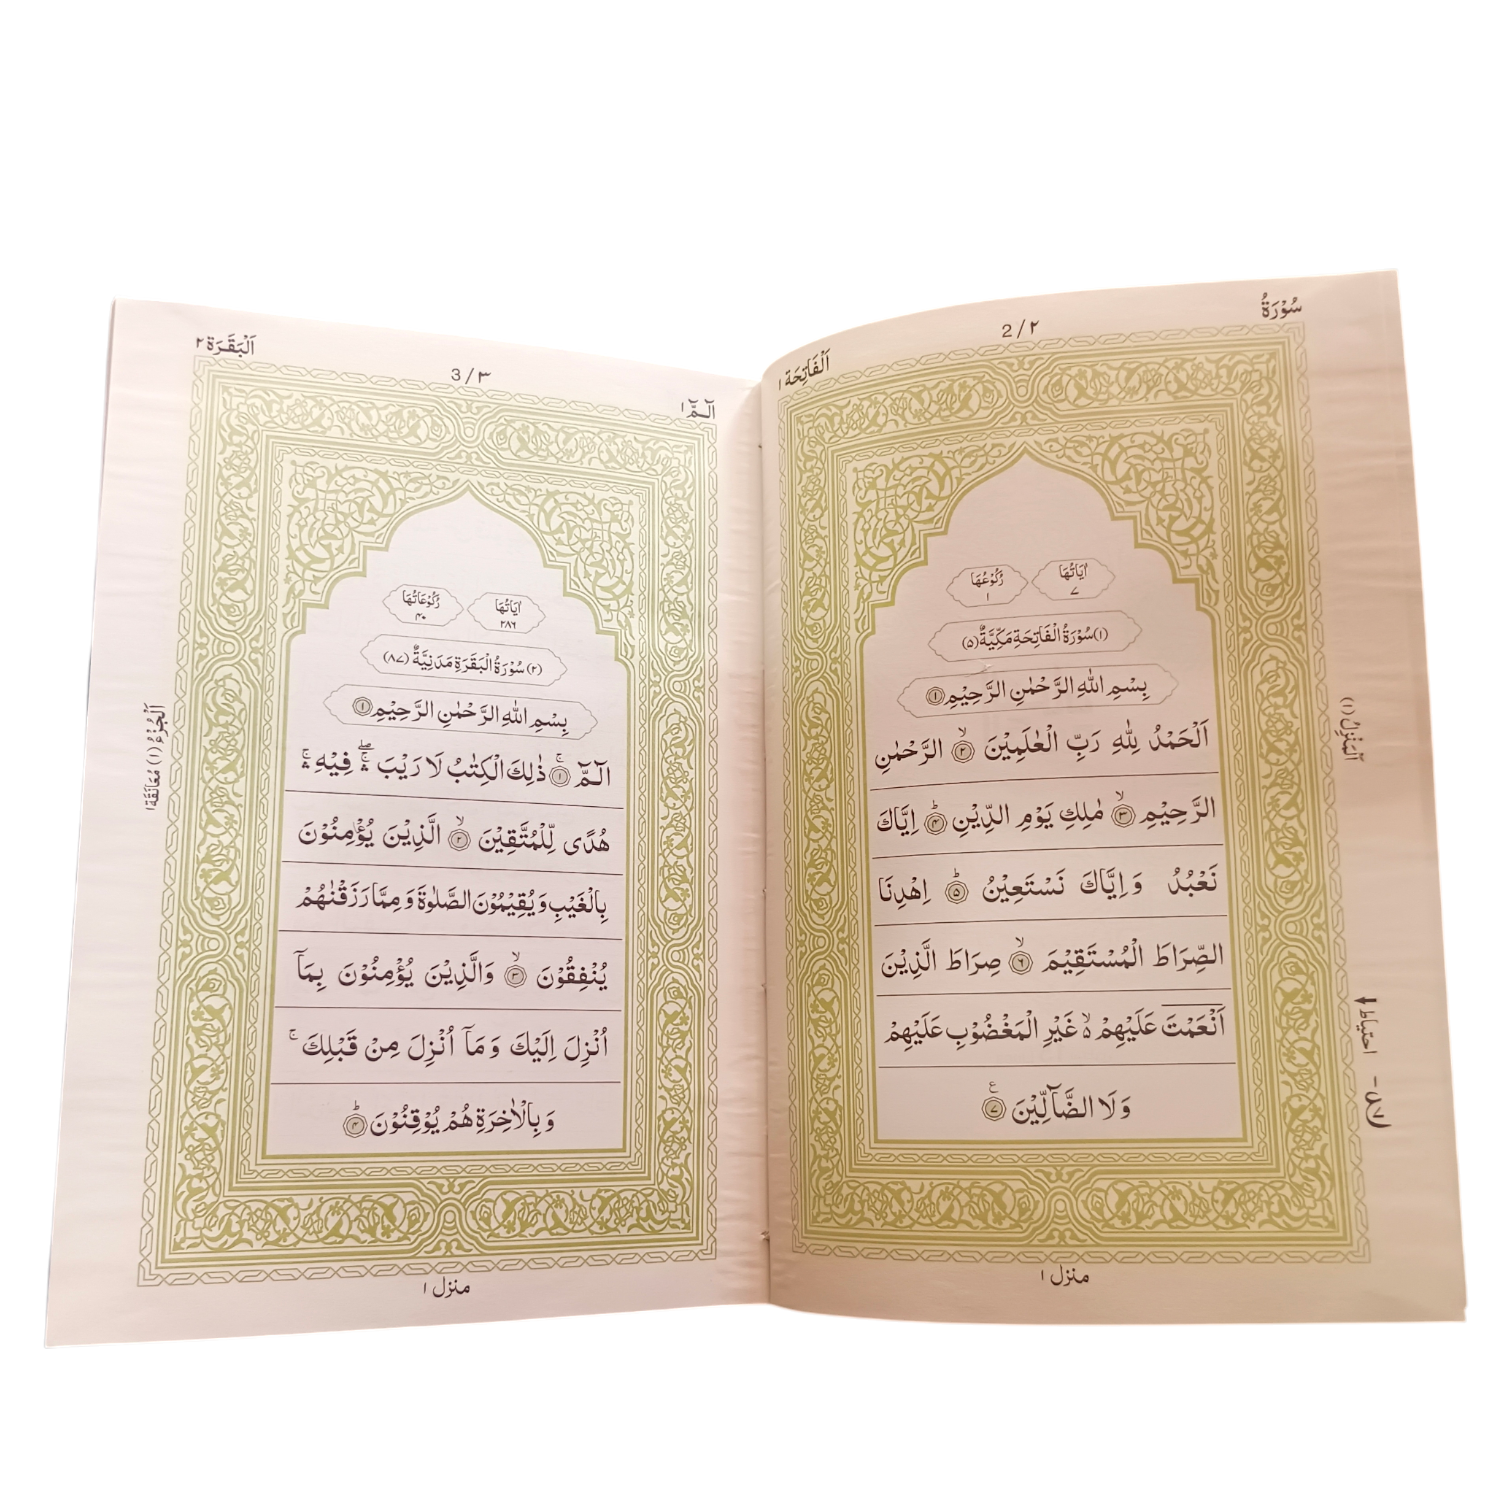 سُوْرَةُ
2/٢
اَلْفَاتِحَة ١
اٰيَاتُهَا
٧
رُكُوْعُهَا
١
(١) سُوْرَةُ الْفَاتِحَةِ مَكِّيَّةٌ (٥)
بِسْمِ اللّٰهِ الرَّحْمٰنِ الرَّحِيْمِ ١
اَلْحَمْدُ لِلّٰهِ رَبِّ الْعٰلَمِيْنَ ۙ ٢ الرَّحْمٰنِ
الرَّحِيْمِ ۙ ٣ مٰلِكِ يَوْمِ الدِّيْنِ ؕ ٤ اِيَّاكَ
نَعْبُدُ وَاِيَّاكَ نَسْتَعِيْنُ ؕ ٥ اِهْدِنَا
الصِّرَاطَ الْمُسْتَقِيْمَ ۙ ٦ صِرَاطَ الَّذِيْنَ
اَنْعَمْتَ عَلَيْهِمْ ۙ۬ غَيْرِ الْمَغْضُوْبِ عَلَيْهِمْ
وَلَا الضَّآلِّيْنَ ٧
منزل ١
اَلْمَنْزِلُ (١)
احتياط
الٓمّٓ ١
3/٣
اَلْبَقَرَة ٢
اٰيَاتُهَا
٢٨٦
رُكُوْعَاتُهَا
٤٠
(٢) سُوْرَةُ الْبَقَرَةِ مَدَنِيَّةٌ (٨٧)
بِسْمِ اللّٰهِ الرَّحْمٰنِ الرَّحِيْمِ ١
الٓمّٓ ۚ ١ ذٰلِكَ الْكِتٰبُ لَا رَيْبَ ۖۛ ۚ فِيْهِ ۚۛ
هُدًى لِّلْمُتَّقِيْنَ ۙ ٢ الَّذِيْنَ يُؤْمِنُوْنَ
بِالْغَيْبِ وَيُقِيْمُوْنَ الصَّلٰوةَ وَمِمَّا رَزَقْنٰهُمْ
يُنْفِقُوْنَ ۙ ٣ وَالَّذِيْنَ يُؤْمِنُوْنَ بِمَآ
اُنْزِلَ اِلَيْكَ وَمَآ اُنْزِلَ مِنْ قَبْلِكَ ۚ
وَبِالْاٰخِرَةِ هُمْ يُوْقِنُوْنَ ؕ ٤
منزل ١
اَلْجُزْءُ (١) مُعَانَقَة ١